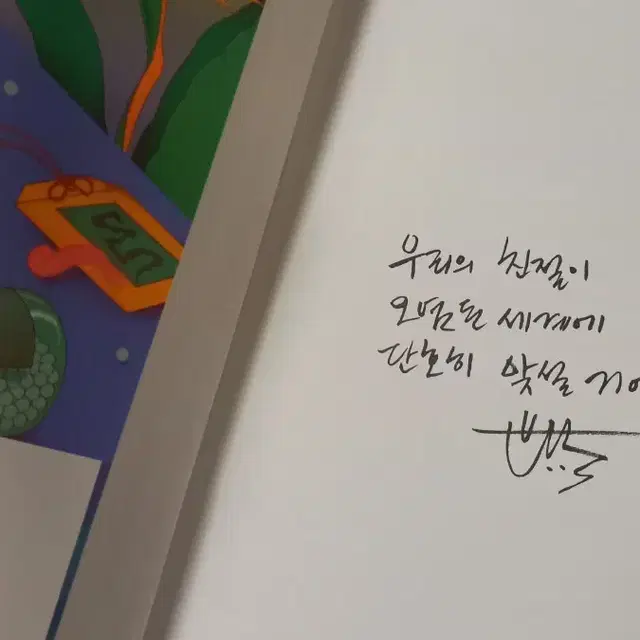 우리의 친절이
오염된 세계에
단호히 맞설 거예